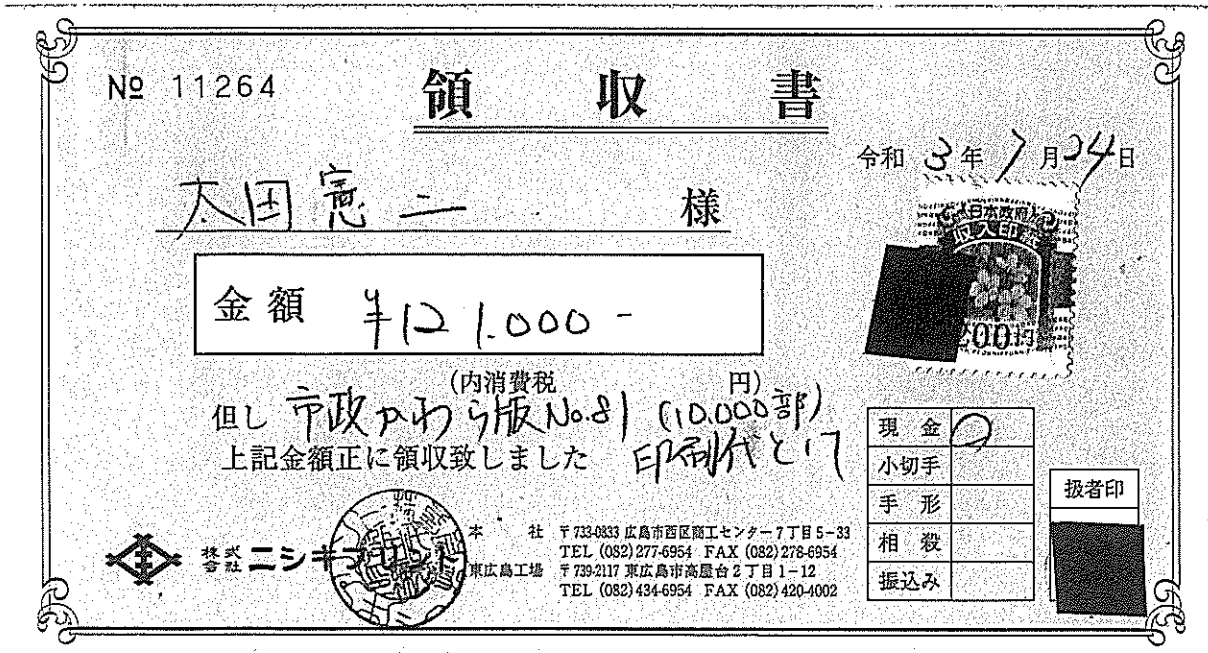 № 11264
領収書
令和 3年 7月24日
太田憲二 様
日本政府
収入印紙
200円
金額 ¥121.000-
(内消費税 円)
但し 市政かわら版No.81 (10.000部)
上記金額正に領収致しました 印刷代として
現金
小切手
手形
相殺
振込み
扱者印
株式会社 ニシキプリント
本社 〒733-0833 広島市西区商工センター7丁目5-33
TEL (082)277-6954 FAX (082)278-6954
東広島工場 〒739-2117 東広島市高屋台2丁目1-12
TEL (082)434-6954 FAX (082)420-4002